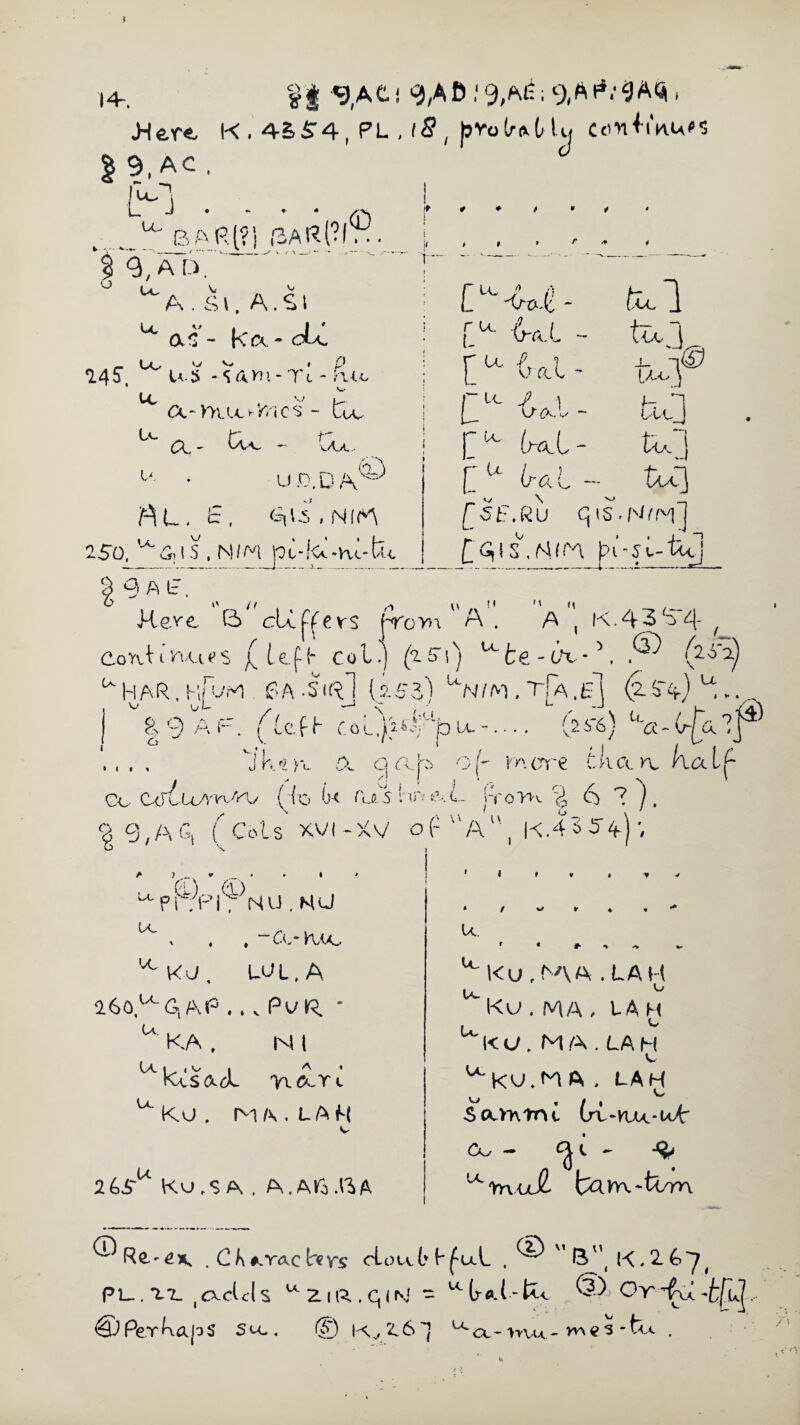 14. §§ 9,AC; 9,AD; 9,AE; 9,AF; 9AG,
Here K. 4354, PL, 18, probably continues
§ 9, AC.
[ᵘ] . . . . .
ᵘ BAR(?) BAR(?)①..
§ 9, AD.
ᵘ A. ŠI. A. ŠI [ᵘ bal - tu]
ᵘ aš - ka - di [ᵘ bal - tu]
245. ᵘ u.š - šam - ri - hu [ᵘ bal - tu]⑤
ᵘ a - mu - meš - tu [ᵘ bal - tu]
ᵘ a - tu - tu [ᵘ bal - tu]
ᵘ . UD.DA② [ᵘ bal - tu]
AL. E. GIŠ. NIM [ŠE.RU qiš.NIM]
250. ᵘ GIŠ. NIM pi-ki-ni-tu [GIŠ.NIM pi-ši-tu]
§ 9 AE.
Here "B" differs from "A". "A", K.4354,
continues (left col.) (251) ᵘ te - ir - '. .③ (252)
ᵘ HAR. H[UM . GA.ŠIR] (253) ᵘ NIM. T[A.E] (254) ᵘ...
§ 9 AF. (left col.) 255 ᵘ pu - .... (256) ᵘ a - b[a?]④
.... Then a gap of more than half
a column (to be furnished from § 6 ?).
§ 9, AG (Cols XVI-XV of "A", K.4354);
ᵘ PI①.PI①.NU.NU . . . . . .
ᵘ . . . - a - nu ᵘ . . . . .
ᵘ KU. LUL. A ᵘ KU. MA. LAH
260. ᵘ GAP... PUR. ᵘ KU. MA. LAH
ᵘ KA. NI ᵘ KU. MA. LAH
ᵘ kišad nari ᵘ KU. MA. LAH
ᵘ KU. MA. LAH šammi bi-nu-ut
a - gi - .
265 ᵘ KU. SA. A.AB.BA ᵘ mul tam-tim
① Re-ex. Characters doubtful. ② "B", K.267,
PL. 22, adds ᵘ ZIR. qIN = ᵘ bal-tu ③ Or -hi-t[u].
④ Perhaps su. ⑤ K, 267 ᵘ a - mu - meš - tu.